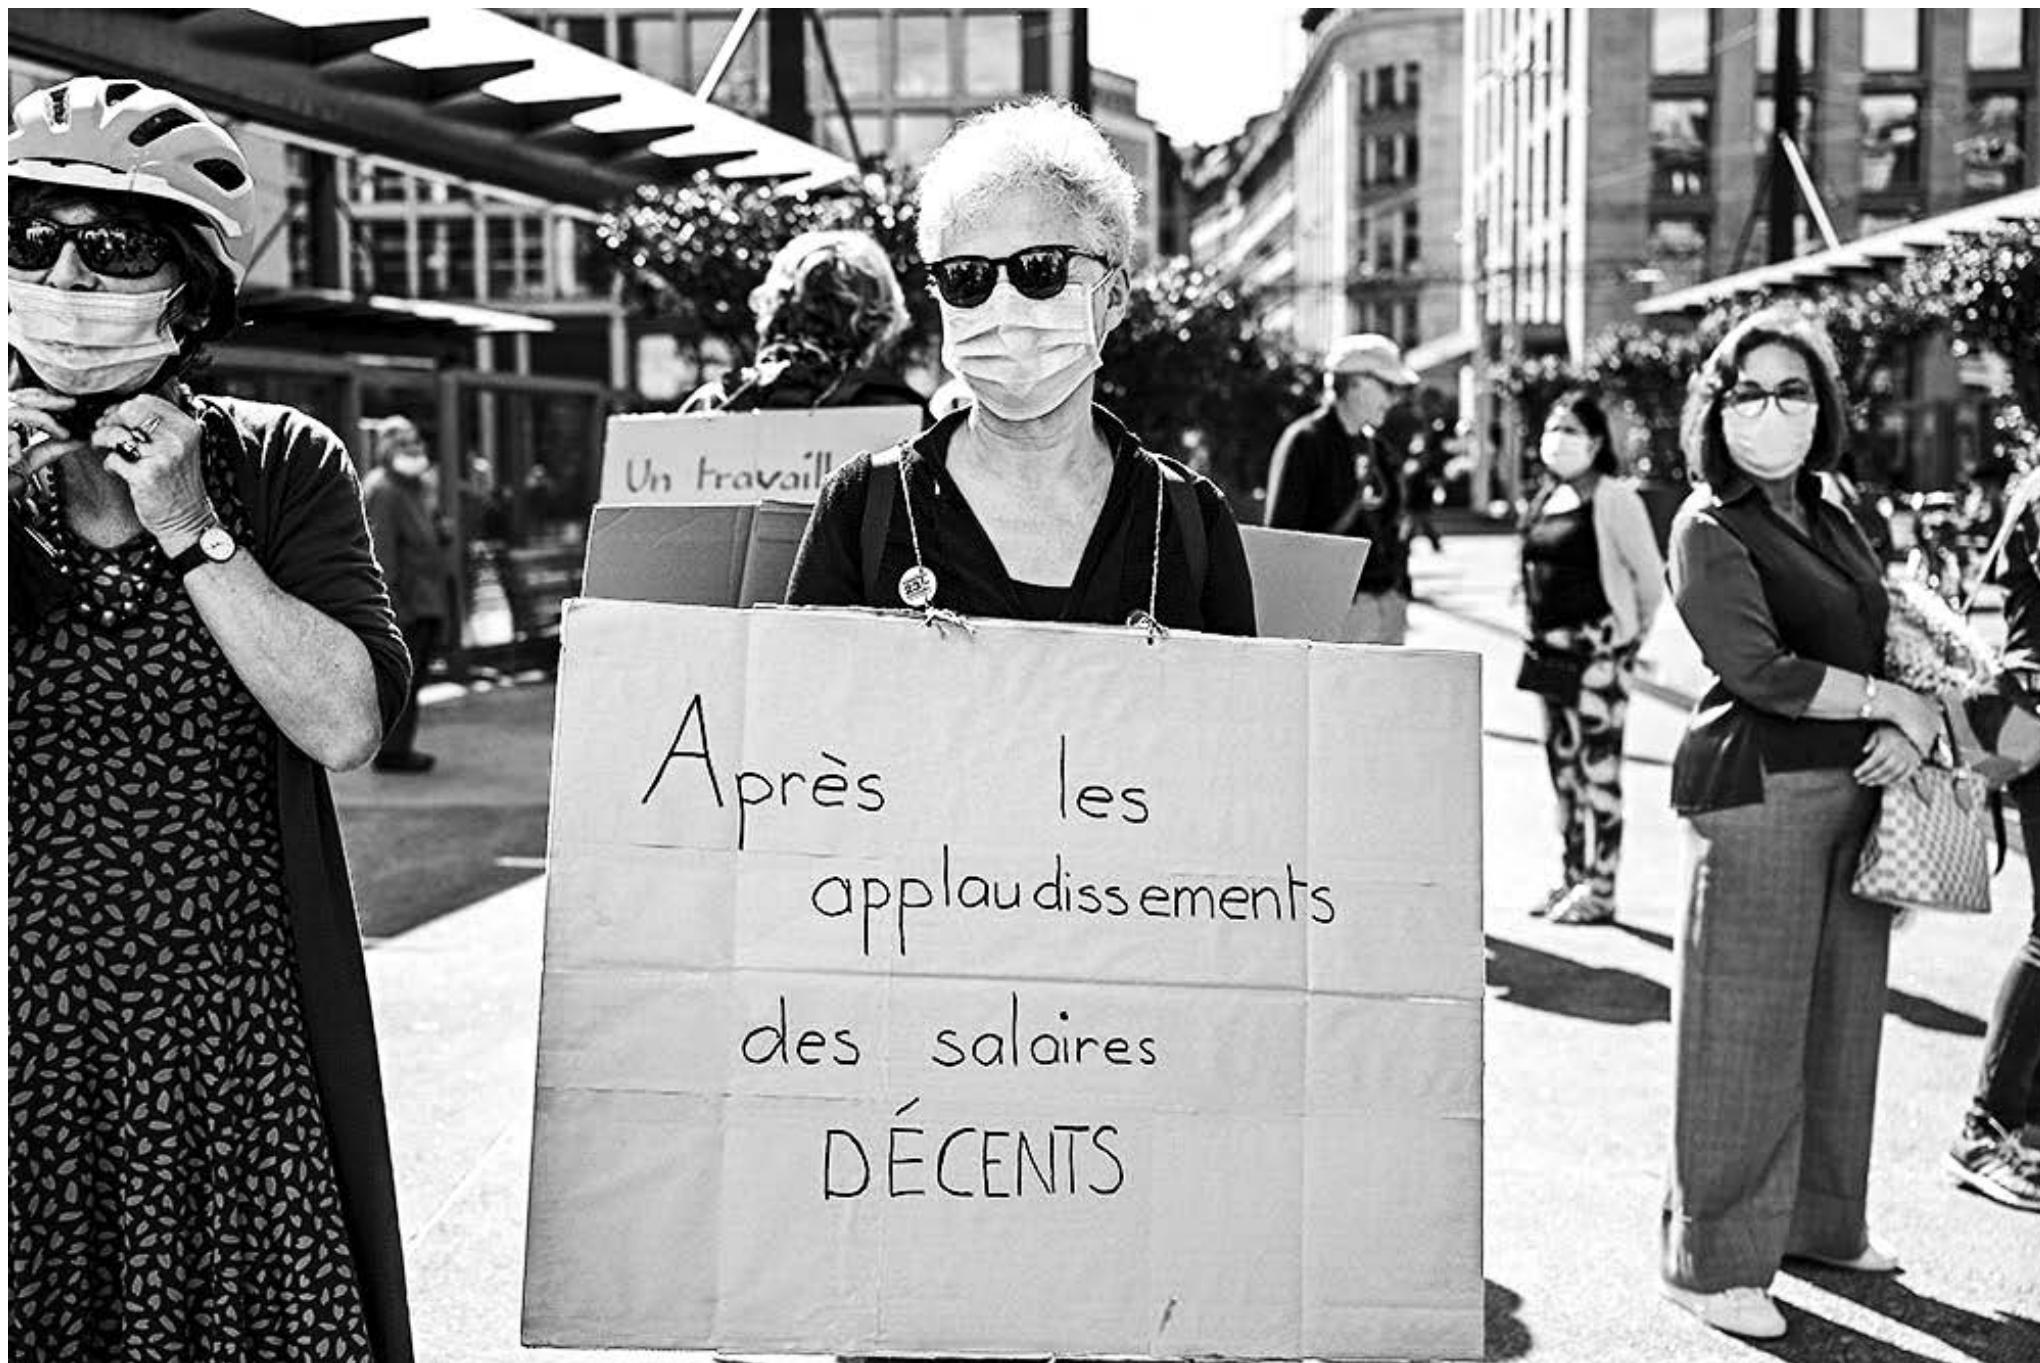 Un travaill
Après les
applaudissements
des salaires
DÉCENTS